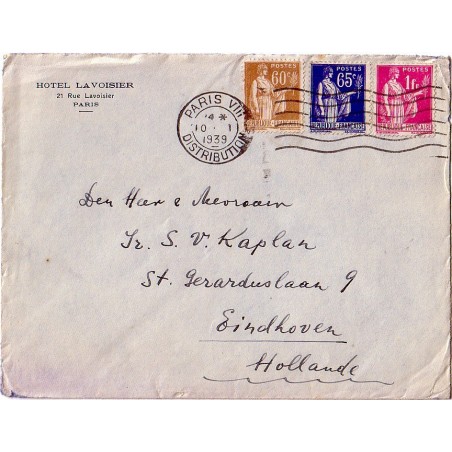 HOTEL LAVOISIER
21 Rue Lavoisier
PARIS
PARIS VIII
14 *
10 · 1
1939
DISTRIBUTION
60c POSTES
65c POSTES
1F POSTES
REPUBLIQUE FRANÇAISE
Den Heer & Mevrouw
Ir. S. V. Kaplan
St. Gerarduslaan 9
Eindhoven
Hollande